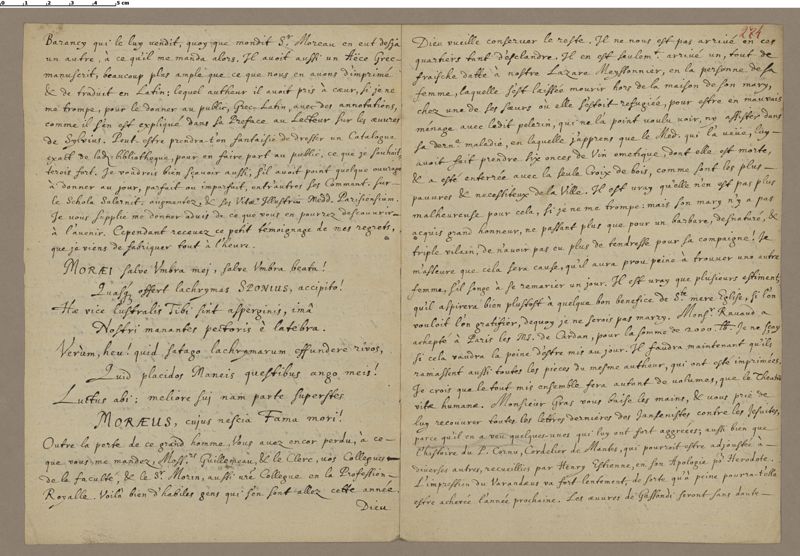 Barancy qui le luy vendit, quoy que mondit Sr Moreau en eut desja
un autre, a ce qu'il me manda alors. Il avoit aussi un Aëce Grec
manuscrit, beaucoup plus ample que ce que nous en avons d'imprimé
& de traduit en Latin; lequel autheur il avoit pris à cœur, si je ne
me trompe, pour le donner au public, Grec-Latin, avec des annotations,
comme il s'en est expliqué dans sa Preface au Lecteur sur les œuvres
de Sylvius. Peut-estre prendra-t'on fantaisie de dresser un Catalogue
exact de lad. bibliotheque, pour en faire part au public, ce que je souhait-
terois fort. Je voudrois bien sçavoir aussi, s'il avoit point quelque ouvrage
à donner au jour, parfait ou imparfait, entr'autres ses Comment. sur
le Schola Salernit. augmentez, & ses Vitæ Illustriũ Medd. Parisiensium.
Je vous supplie me donner advis de ce que vous en pourrez descouvrir
à l'avenir. Cependant recevez ce petit témoignage de mes regrets,
que je viens de fabriquer tout à l'heure.
MORÆI salve Umbra mei, salve Umbra beata!
Quasq; offert lachrymas SPONIUS, accipito!
Hæ vice lustralis Tibi sint asperginis, imâ
Nostri manantes pectoris è latebra.
Verùm, heu! quid satago lachrymarum effundere rivos,
Quid placidos Maneis questibus ango meis!
Luctus abi; meliore suj nam parte superstes
MORÆUS, cujus nescia Fama mori!
Outre la perte de ce grand homme, Vous avez encor perdu, à ce
que vous me mandez, Mess.rs Guillemeau, & le Clerc, vos Collegues
de la faculté, & le Sr. Morin, aussi vre Collegue en la Profession
Royalle. Voilà bien d'habiles gens qui s'en sont allez cette année.
Dieu
284
Dieu vueille conserver le reste. Il ne nous est pas arrivé en ces
quartiers tant d'esclandre. Il en est seulemt. arrivé un, tout de
fraische datte à nostre Lazare Meyssonnier, en la personne de sa
femme, laquelle s'est laissée mourir hors de la maison de son mary,
chez une de ses sœurs où elle s'estoit refugiée, pour estre en mauvais
ménage avec ledit pelerin, qui ne l'a point voulu voir, ny assister dans
sa dern.e maladie, en laquelle j'apprens que le Med. qui la veüe, luy
avoit fait prendre six onces de Vin emetique, dont elle est morte,
& a esté enterrée avec la seule Croix de bois, comme sont les plus
pauvres & necessiteux de la Ville. Il est vray qu'elle n'en est pas plus
malheureuse pour cela, si je ne me trompe: mais son mary n'y a pas
acquis grand honneur, ne passant plus que pour un barbare, desnaturé, &
triple vilain, de n'avoir pas eu plus de tendresse pour sa compaigne! Je
m'asseure que cela sera cause, qu'il aura prou peine à trouver une autre
femme, s'il songe à se remarier un jour. Il est vray que plusieurs estiment,
qu'il aspirera bien plustost à quelque bon benefice de Ste mere Eglise, si l'on
vouloit l'en gratifier, dequoy je ne serois pas marry. Monsr. Ravaud a
achepté à Paris les MS. de Cardan, pour la somme de 2000 ₶. Je ne sçay
si cela vaudra la peine d'estre mis au jour. Il faudra maintenant qu'ils
ramassent aussi toutes les pieces du mesme autheur, qui ont esté imprimées.
Je crois que le tout mis ensemble fera autant de volumes, que le Theatrũ
vitæ humanæ. Monsieur Gras vous baise les mains, & vous prie de
luy recouvrer toutes les lettres dernieres des Jansenistes contre les Jesuites,
parce qu'il en a veu quelques-unes qui luy ont fort aggreées; aussi bien que
l'histoire du P. Cornu, Cordelier de Mantes, qui pourroit estre adjoustée à
diverses autres, recueillies par Henry Estienne, en son Apologie pr Herodote.
L'impression du Varandæus va fort lentement, de sorte qu'à peine pourra-t'elle
estre achevée l'année prochaine. Les œuvres de Gassendi seront sans doute